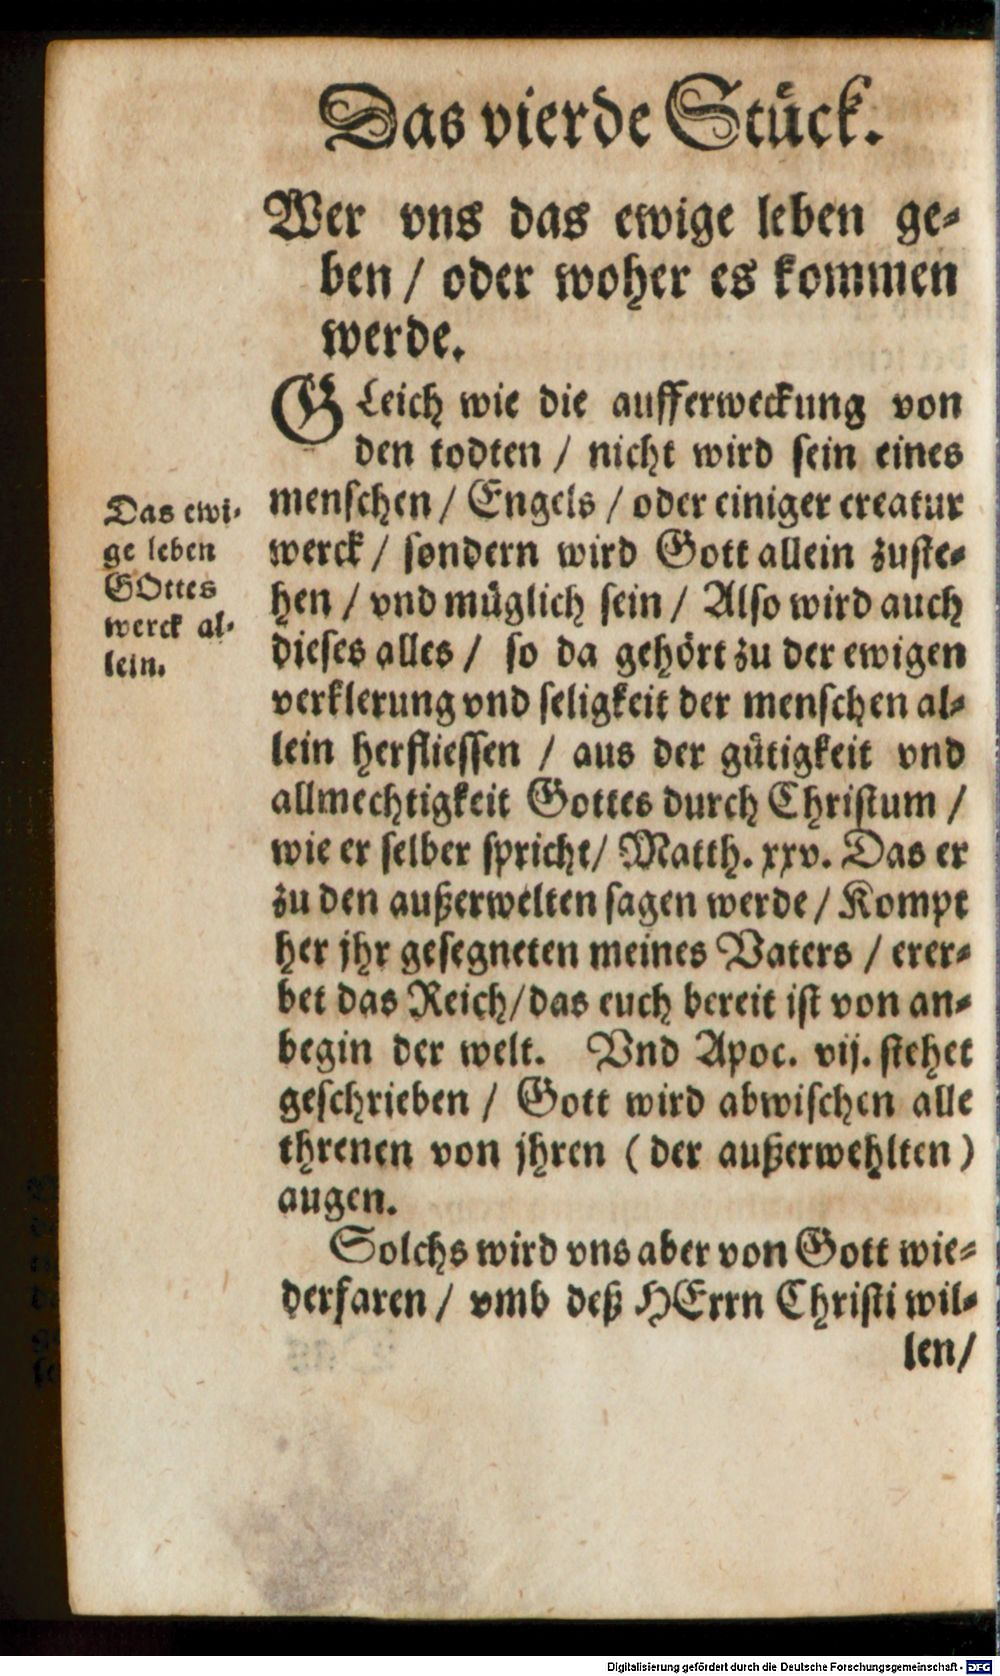 Das vierde Stück.
Wer vns das ewige leben ge-
ben / oder woher es kommen
werde.
GLeich wie die aufferweckung von
den todten / nicht wird sein eines
menschen / Engels / oder einiger creatur
werck / sondern wird Gott allein zuste-
hen / vnd müglich sein / Also wird auch
dieses alles / so da gehört zu der ewigen
verklerung vnd seligkeit der menschen al-
lein herfliessen / aus der gütigkeit vnd
allmechtigkeit Gottes durch Christum /
wie er selber spricht / Matth. xxv. Das er
zu den außerwelten sagen werde / Kompt
her jhr gesegneten meines Vaters / erer-
bet das Reich / das euch bereit ist von an-
begin der welt. Vnd Apoc. vij. stehet
geschrieben / Gott wird abwischen alle
threnen von jhren ( der außerwehlten )
augen.
Solchs wird vns aber von Gott wie-
derfaren / vmb deß HErrn Christi wil-
len /
Das ewi-
ge leben
GOttes
werck al-
lein.
Digitalisierung gefördert durch die Deutsche Forschungsgemeinschaft - DFG